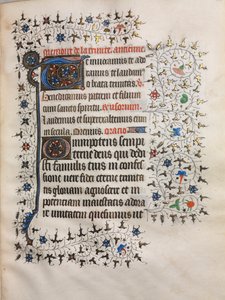 Memoire de la trinite. antienne.
Te invocamus te ado
ramus te laudam᷒
o beata trinitas. ℣
Benedicamus patrem et filium
cum sancto spiritu. Responsorium.
Laudemus et superexaltemus eum
in secula. Oremus. Oracio
Omnipotens sempi
terne deus qui dedi
sti famulis tuis in confes
sione vere fidei eterne trinita
tis gloriam agnoscere et in
potencia maiestatis adora
re unitatem quesumus ut